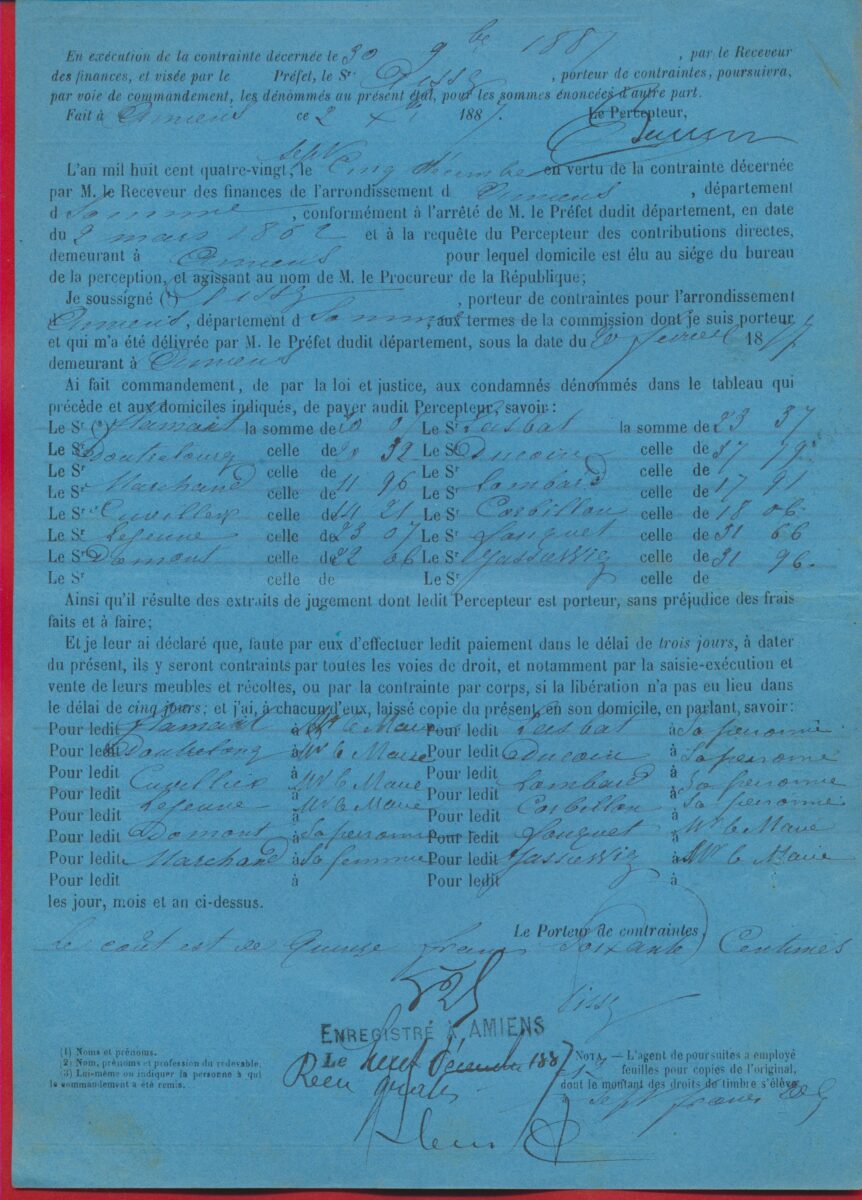 En exécution de la contrainte décernée le 30 9bre 1887, par le Receveur
des finances, et visée par le Préfet, le Sr Tissy, porteur de contraintes, poursuivra,
par voie de commandement, les dénommés au présent état, pour les sommes énoncées d'autre part.
Fait à Amiens ce 2 Xbre 1887. Le Percepteur,
L'an mil huit cent quatre-vingt sept, le Cinq décembre en vertu de la contrainte décernée
par M. le Receveur des finances de l'arrondissement d Amiens, département
d Somme, conformément à l'arrêté de M. le Préfet dudit département, en date
du 2 mars 1862 et à la requête du Percepteur des contributions directes,
demeurant à Amiens pour lequel domicile est élu au siége du bureau
de la perception, et agissant au nom de M. le Procureur de la République;
Je soussigné (1) Tissy, porteur de contraintes pour l'arrondissement
d Amiens, département d Somme, aux termes de la commission dont je suis porteur
et qui m'a été délivrée par M. le Préfet dudit département, sous la date du février 18
demeurant à Amiens
Ai fait commandement, de par la loi et justice, aux condamnés dénommés dans le tableau qui
précède et aux domiciles indiqués, de payer audit Percepteur, savoir:
Le Sr (2) Flamant la somme de Le Sr Lasbat la somme de 23 37
Le Sr celle de 32 Le Sr Ducoin celle de
Le Sr Marchand celle de 11 96 Le Sr Lombard celle de 17 91
Le Sr Cuvillier celle de 11 21 Le Sr Corbillon celle de 18 06
Le Sr Lejeune celle de 23 07 Le Sr Fouquet celle de 31 66
Le Sr Domont celle de 22 06 Le Sr celle de 31 96.
Le Sr celle de Le Sr celle de
Ainsi qu'il résulte des extraits de jugement dont ledit Percepteur est porteur, sans préjudice des frais
faits et à faire;
Et je leur ai déclaré que, faute par eux d'effectuer ledit paiement dans le délai de trois jours, à dater
du présent, ils y seront contraints par toutes les voies de droit, et notamment par la saisie-exécution et
vente de leurs meubles et récoltes, ou par la contrainte par corps, si la libération n'a pas eu lieu dans
le délai de cinq jours; et j'ai, à chacun d'eux, laissé copie du présent, en son domicile, en parlant, savoir:
Pour ledit Flamant à Mr le Maire Pour ledit Lasbat à Sa personne
Pour ledit à Mr le Maire Pour ledit Ducoin à Sa personne
Pour ledit Cuvillier à Mr le Maire Pour ledit Lombard à Sa personne
Pour ledit Lejeune à Mr le Maire Pour ledit Corbillon à Sa personne
Pour ledit Domont à Sa personne Pour ledit Fouquet à Mr le Maire
Pour ledit Marchand à Sa femme Pour ledit à Mr le Maire
Pour ledit à Pour ledit à
les jour, mois et an ci-dessus.
Le Porteur de contraintes,
Le coût est de Quinze francs Soixante Centimes
Tissy
ENREGISTRÉ À AMIENS
Le neuf décembre 1887
Reçu
(1) Noms et prénoms.
(2) Nom, prénoms et profession du redevable.
(3) Lui-même ou indiquer la personne à qui
le commandement a été remis.
NOTA. — L'agent de poursuites a employé
feuilles pour copies de l'original,
dont le montant des droits de timbre s'élève
à Sept francs